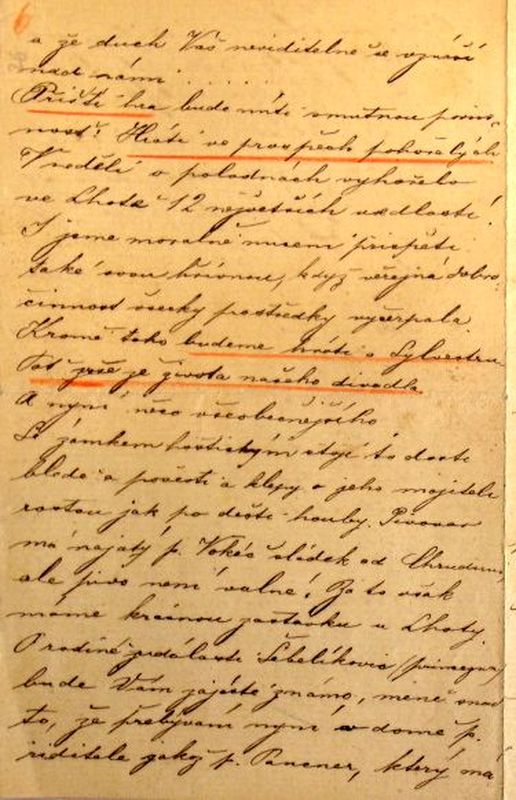 6
a že duch Váš neviditelně se vznáší
nad námi . . . . .
Příští hra bude míti smutnou povin-
nost! Hráti ve prospěch pohořelých
V neděli o polednách vyhořelo
ve Lhotě 12 největších usedlostí!
I jsme morálně nuceni přispěti
také svou hřivnou, když veřejná dobro-
činnost všecky prostředky vyčerpala.
Kromě toho budeme hráti o Sylvestru.
Toť je života našeho divadla
A nyní něco všeobecnějšího
Se zámkem hoštickým stojí to dosti
bledě a pověsti a klepy o jeho majiteli
rostou jak po dešti houby. Pivovar
má najatý p. Vokáč sládek od Chrudimi,
ale pivo není valné! Za to však
máme krásnou zastávku u Lhoty.
O rodinné události Šebelíkovic
bude Vám zajisté známo, méně snad
to, že přebývám nyní v domě p.
řiditele jakož p. Pancner, který má